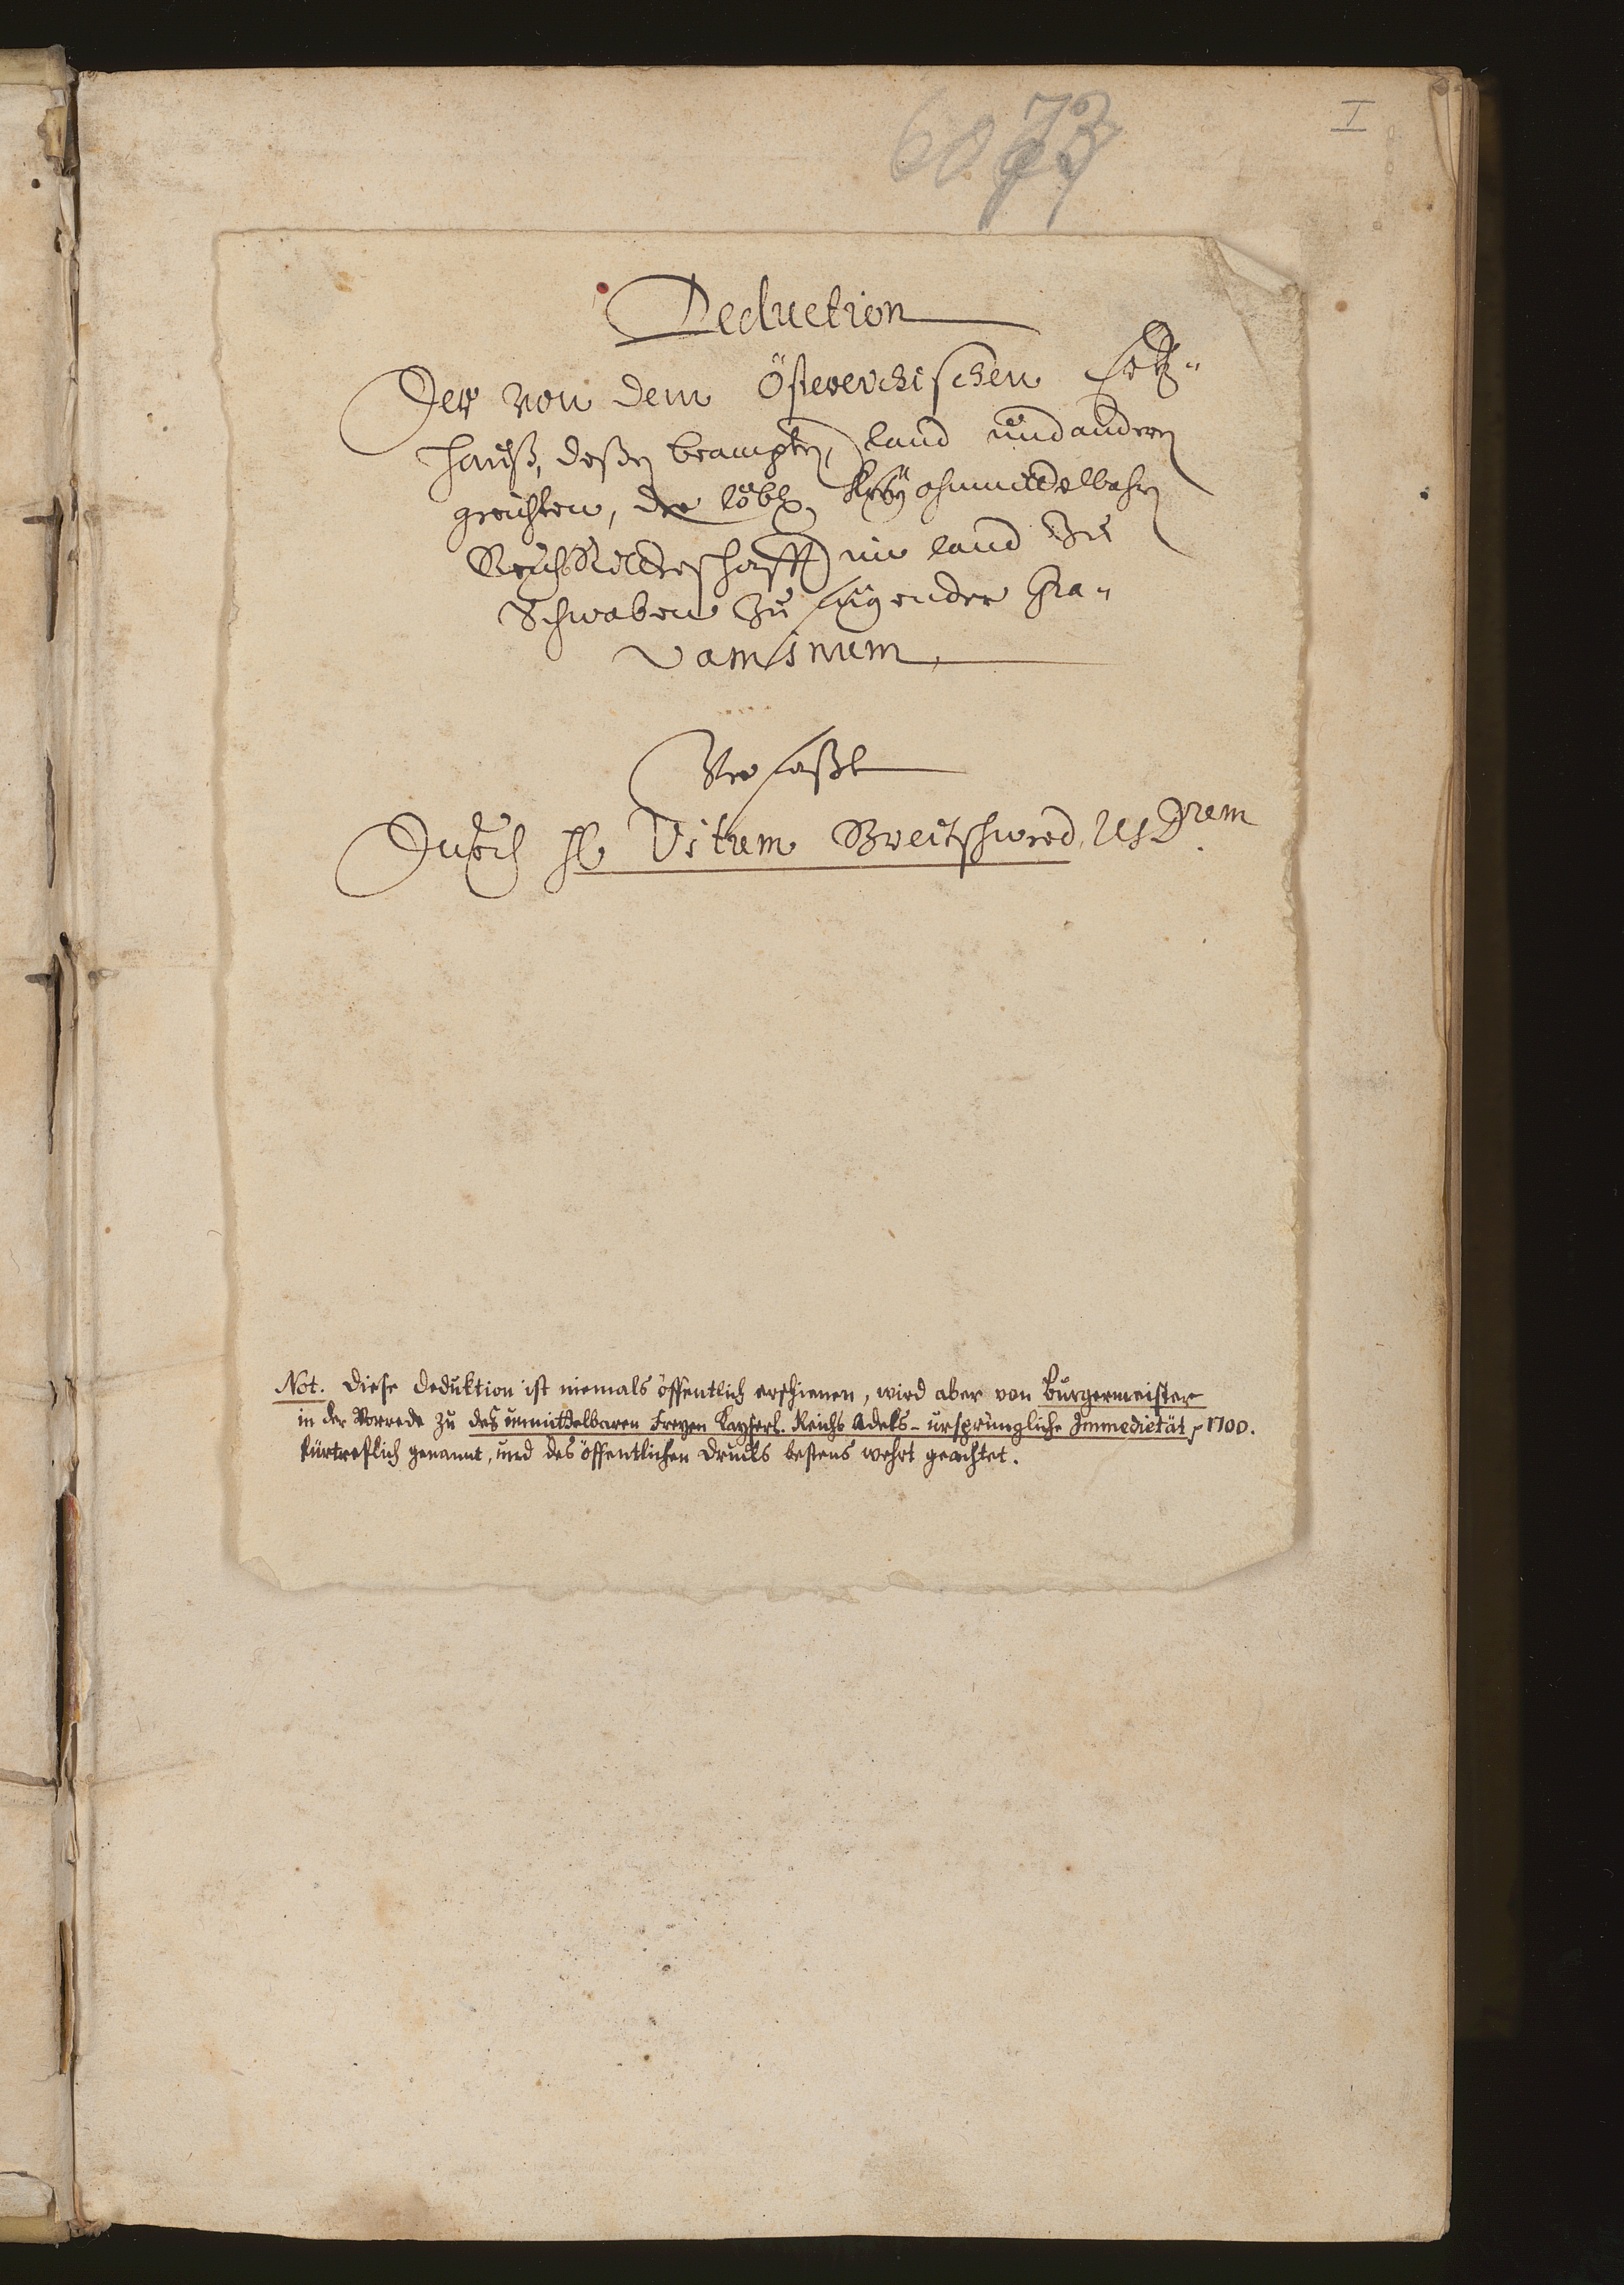 6073
I
Deduction
Der von dem Österreichischen Ertz-
hauß, deßen beampten, land und andern
gerichten, der löbl. Freÿ ohnmittelbahren
Reichs Ritterschafft im land zu
Schwaben zu fügender Gra-
vaminum,
Verfaßt
Durch H. Vitum Breitschwerd, U.J.Drem
Not. Diese Deduktion ist niemals öffentlich erschienen, wird aber von Burgermeister
in der Vorrede zu des unmittelbaren Freyen Kayserl. Reichs Adels - ursprüngliche Immedietät p 1700.
fürtreflich genannt, und des öffentlichen Drucks bestens wehrt geachtet.